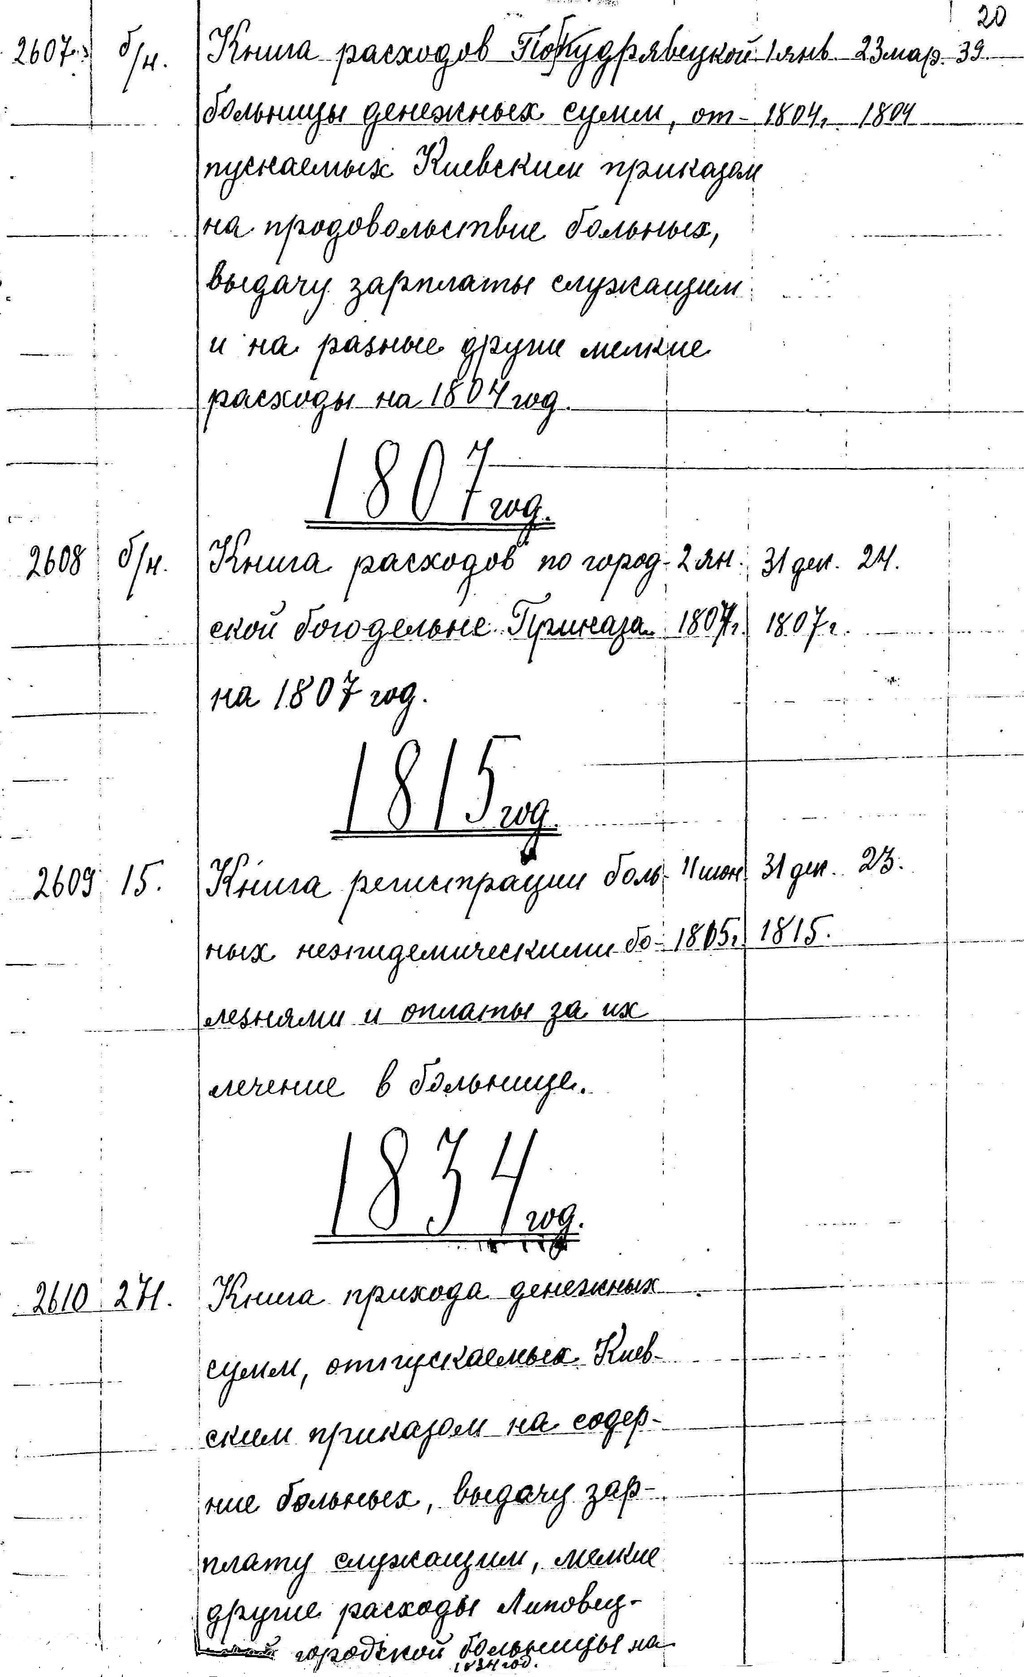 20
2607. б/н. Книга расходов Кудрявецкой 1 янв. 23 мар. 39.
больницы денежных сумм, от- 1804г. 1804
пускаемых Киевским приказом
на продовольствие больных,
выдачу зарплаты служащим
и на разные другие мелкие
расходы на 1804 год.
1807 год.
2608 б/н. Книга расходов по город- 2 ян. 31 дек. 24.
ской богодельне Приказа 1807г. 1807г.
на 1807 год.
1815 год.
2609 15. Книга регистрации боль- 31 дек. 23.
ных неэпидемическими бо- 1815.
лезнями и оплаты за их
лечение в больнице.
1834 год.
2610 274. Книга прихода денежных
сумм, отпускаемых Киев-
ским приказом на содер-
ние больных, выдачу зар-
плату служащим, мелкие
другие расходы Липовец-
городской больницы на
1834 год.